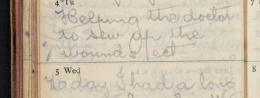 4 Tu
Helping the doctor
to sew up the
wounds ect
5 Wed
Today I had a long